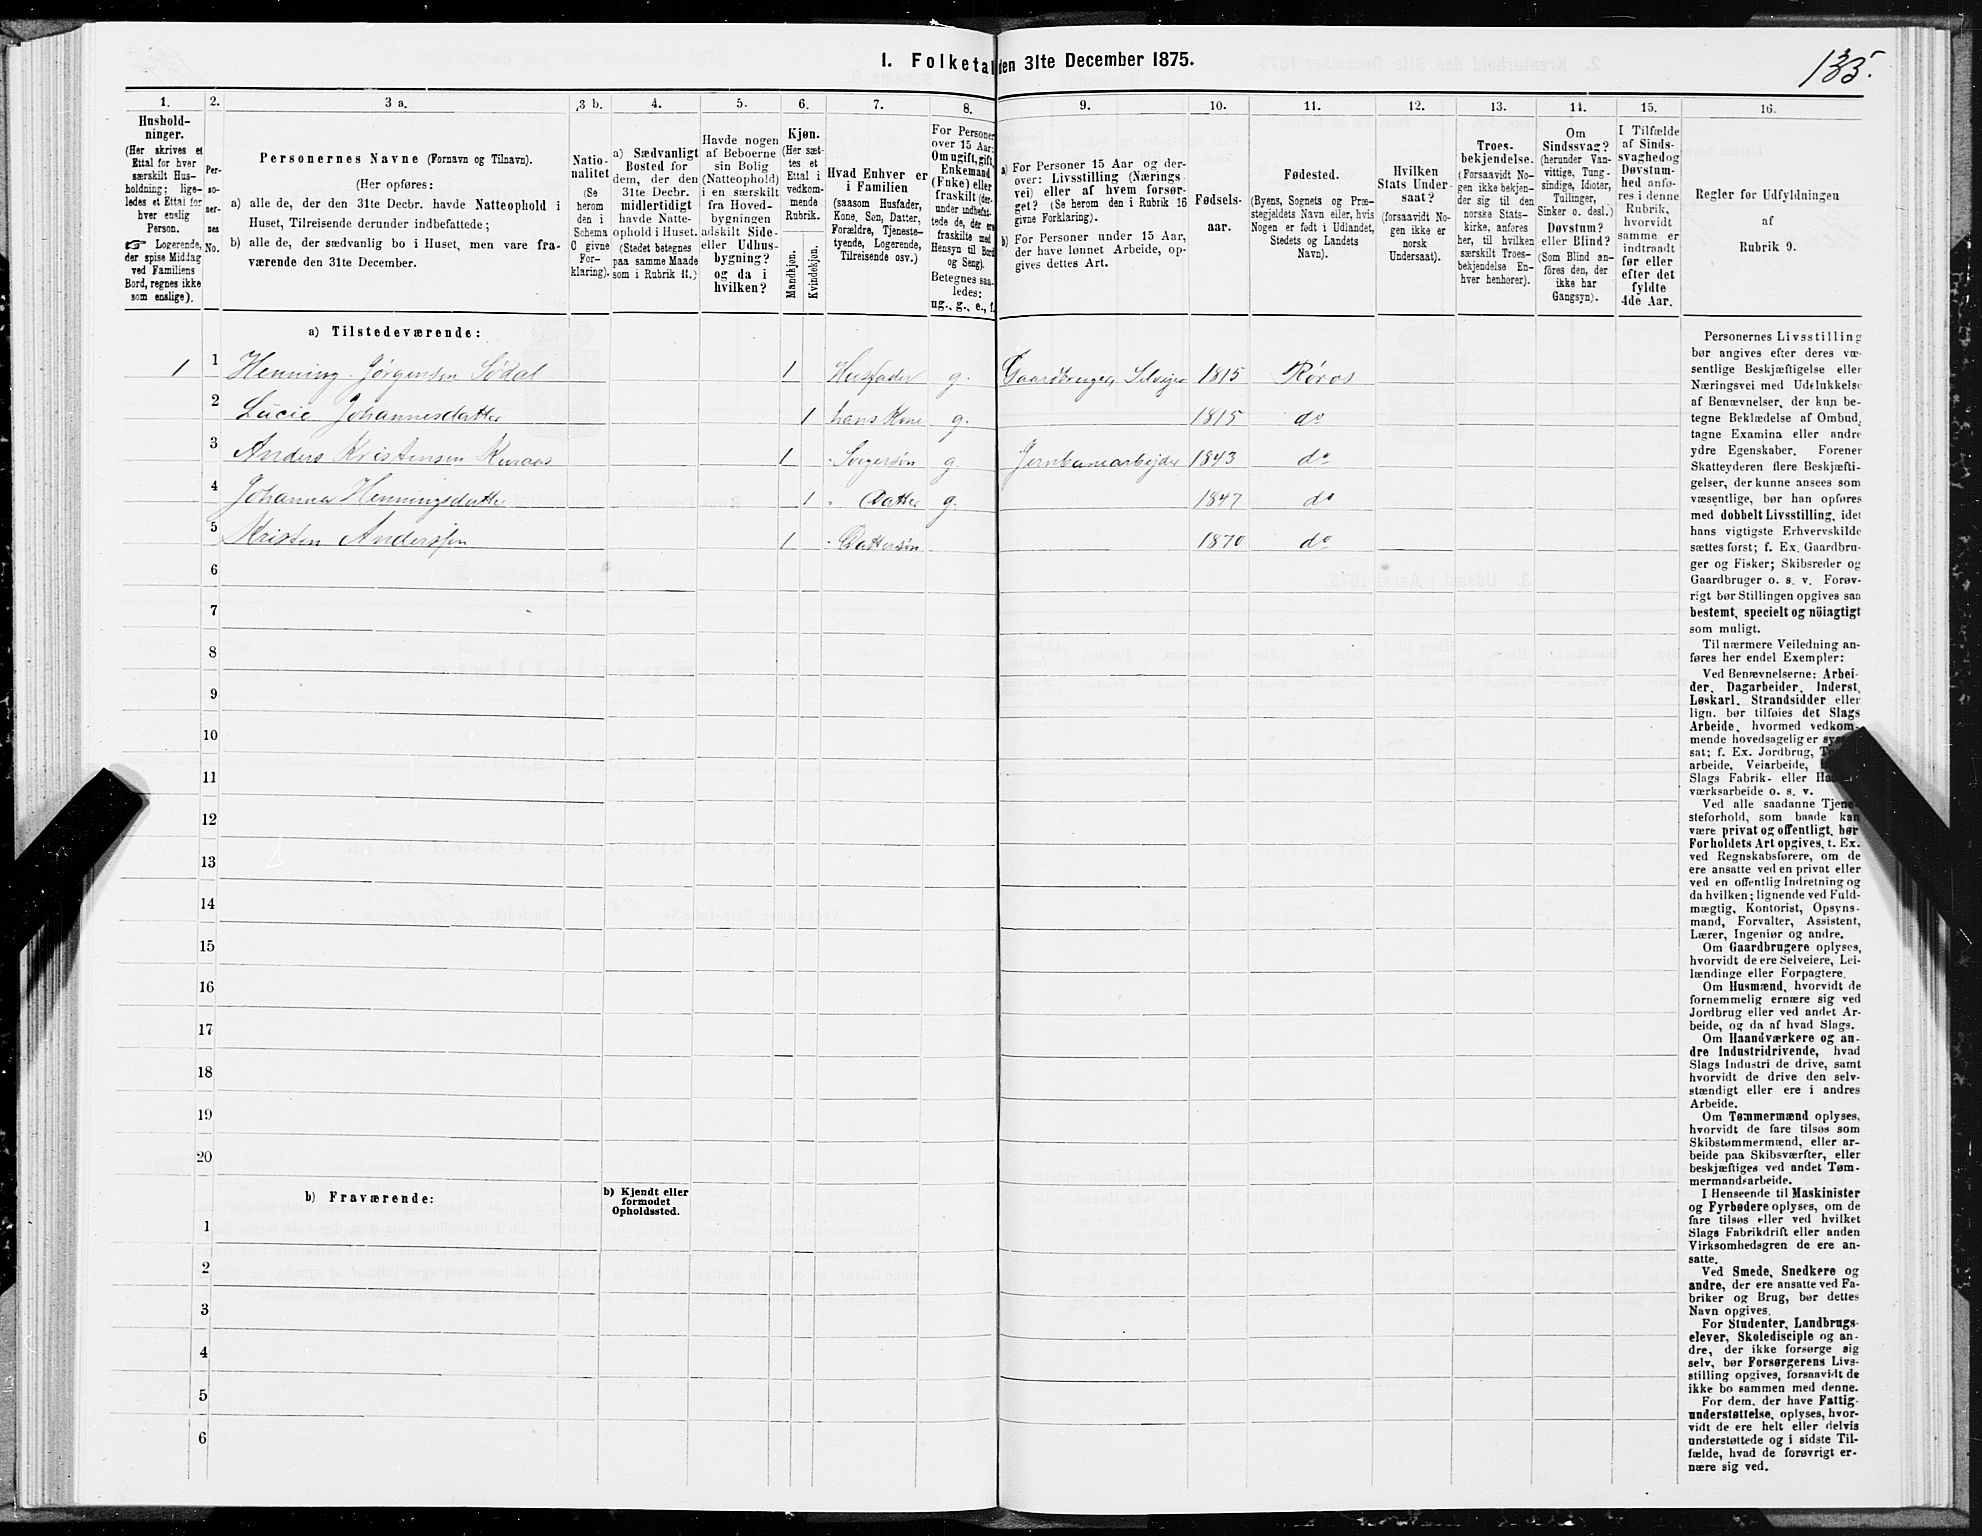 1. Folketal den 31te December 1875.
135.
1.
Hushold-
ninger.
(Her skrives et
Ettal for hver
særskilt Hus-
holdning; lige-
ledes et Ettal for
hver enslig
Person.
☞ Logerende,
der spise Middag
ved Familiens
Bord, regnes ikke
som enslige).
2.
Per-
so-
ner-
nes
No.
3 a.
Personernes Navne (Fornavn og Tilnavn).
(Her opføres:
a) alle de, der den 31te Decbr. havde Natteophold i
Huset, Tilreisende derunder indbefattede;
b) alle de, der sædvanlig bo i Huset, men vare fra-
værende den 31te December.
3 b.
Natio-
nalitet
(Se
herom
den i
Schema
C givne
For-
klaring).
4.
a) Sædvanligt
Bosted for
dem, der den
31te Decbr.
midlertidigt
havde Natte-
ophold i Huset.
(Stedet betegnes
paa samme Maade
som i Rubrik 11.)
5.
Havde nogen
af Beboerne
sin Bolig
(Natteophold)
i en særskilt
fra Hoved-
bygningen
adskilt Side-
eller Udhus-
bygning?
og da i
hvilken?
6.
Kjøn.
(Her sæt-
tes et
Ettal i
vedkom-
mende
Rubrik.
Mandkjøn.
Kvindekjøn.
7.
Hvad Enhver er
i Familien
(saasom Husfader,
Kone, Søn, Datter,
Forældre, Tjeneste-
tyende, Logerende,
Tilreisende osv.)
8.
For Personer
over 15 Aar:
Om ugift, gift,
Enkemand
(Enke) eller
fraskilt (der-
under indbefat-
tede de, der ere
fraskilte med
Hensyn til Bord
og Seng).
Betegnes saa-
ledes:
ug., g., e., f.
9.
a) For Personer 15 Aar og der-
over: Livsstilling (Nærings-
vei) eller af hvem forsør-
get? (Se herom den i Rubrik 16
givne Forklaring).
b) For Personer under 15 Aar,
der have lønnet Arbeide, op-
gives dettes Art.
10.
Fødsels-
aar.
11.
Fødested.
(Byens, Sognets og Præ-
stegjeldets Navn eller, hvis
Nogen er født i Udlandet,
Stedets og Landets
Navn).
12.
Hvilken
Stats Under-
saat?
(forsaavidt No-
gen ikke er
norsk
Undersaat).
13.
Troes-
bekjendelse.
(Forsaavidt No-
gen ikke bekjen-
der sig til den
norske Stats-
kirke, anføres
her, til hvilken
særskilt Troes-
bekjendelse En-
hver henhører).
14.
Om
Sindssvag?
(herunder Van-
vittige, Tung-
sindige, Idioter,
Tullinger,
Sinker o. desl.)
Døvstum?
eller Blind?
(Som Blind an-
føres den, der
ikke har
Gangsyn).
15.
I Tilfælde
af Sinds-
svaghed og
Døvstum-
hed anfø-
res i denne
Rubrik,
hvorvidt
samme er
indtraadt
før eller
efter det
fyldte
4de Aar.
16.
Regler for Udfyldningen
af
Rubrik 9.
a) Tilstedeværende:
1 1 Henning Jørgensen Sødal 1 Husfader g. Gaardbruger, Selveier 1815 Røros
2 Lucie Johannesdatter 1 hans Kone g. 1815 do
3 Anders Kristensen Kuraas 1 Svigersøn g. Jernbanearbejder 1843 do
4 Johanna Henningsdatter 1 " Datter g. 1847 do
5 Kristen Anderssen 1 " Dattersøn 1870 do
6
7
8
9
10
11
12
13
14
15
16
17
18
19
20
b) Fraværende:
b) Kjendt eller
formodet
Opholdssted.
1
2
3
4
5
6
Personernes Livsstilling
bør angives efter deres væ-
sentlige Beskjæftigelse eller
Næringsvei med Udelukkelse
af Benævnelser, der kun be-
tegne Beklædelse af Ombud,
tagne Examina eller andre
ydre Egenskaber. Forener
Skatteyderen flere Beskjæfti-
gelser, der kunne ansees som
væsentlige, bør han opføres
med dobbelt Livsstilling, idet
hans vigtigste Erhvervskilde
sættes først; f. Ex. Gaardbru-
ger og Fisker; Skibsreder og
Gaardbruger o. s. v. Forøv-
rigt bør Stillingen opgives saa
bestemt, specielt og nöiagtigt
som muligt.
Til nærmere Veiledning an-
føres her endel Exempler:
Ved Benævnelserne: Arbei-
der, Dagarbeider, Inderst,
Løskarl, Strandsidder eller
lign. bør tilføies det Slags
Arbeide, hvormed vedkom-
mende hovedsagelig er
sat; f. Ex. Jordbrug,
arbeide, Veiarbeide,
Slags Fabrik- eller
værksarbeide o. s. v.
Ved alle saadanne Tjene-
steforhold, som baade kan
være privat og offentligt, bør
Forholdets Art opgives, t. Ex.
ved Regnskabsførere, om de
ere ansatte ved en privat eller
ved en offentlig Indretning og
da hvilken; lignende ved Fuld-
mægtig, Kontorist, Opsyns-
mand, Forvalter, Assistent,
Lærer, Ingeniør og andre.
Om Gaardbrugere oplyses,
hvorvidt de ere Selveiere, Lei-
lændinge eller Forpagtere.
Om Husmænd, hvorvidt de
fornemmelig ernære sig ved
Jordbrug eller ved andet Ar-
beide, og da af hvad Slags.
Om Haandværkere og an-
dre Industridrivende, hvad
Slags Industri de drive, samt
hvorvidt de drive den selv-
stændigt eller ere i andres
Arbeide.
Om Tømmermænd oplyses,
hvorvidt de fare tilsøs som
Skibstømmermænd, eller ar-
beide paa Skibsværfter, eller
beskjæftiges ved andet Tøm-
mermandsarbeide.
I Henseende til Maskinister
og Fyrbødere oplyses, om de
fare tilsøs eller ved hvilket
Slags Fabrikdrift eller anden
Virksomhedsgren de ere an-
satte.
Ved Smede, Snedkere og
andre, der ere ansatte ved Fa-
briker og Brug, bør dettes
Navn opgives.
For Studenter, Landbrugs-
elever, Skoledisciple og an-
dre, der ikke forsørge sig
selv, bør Forsørgerens Livs-
stilling opgives, forsaavidt de
ikke bo sammen med denne.
For dem, der have Fattig-
understøttelse, oplyses, hvor-
vidt de ere helt eller delvis
understøttede og i sidste Til-
fælde, hvad de forøvrigt er-
nære sig ved.